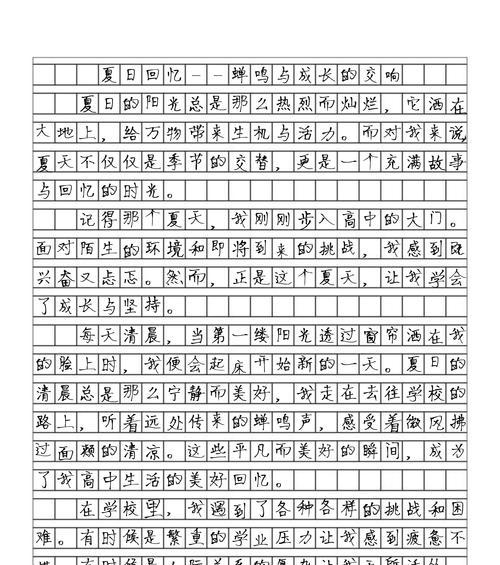 夏日回忆--蝉鸣与成长的交响
夏日的阳光总是那么热烈而灿烂，它洒在
大地上，给万物带来生机与活力。而对我来说，
夏天不仅仅是季节的交替，更是一个充满故事
与回忆的时光。
记得那个夏天，我刚刚步入高中的大门。
面对陌生的环境和即将到来的挑战，我感到既
兴奋又忐忑。然而，正是这个夏天，让我学会
了成长与坚持。
每天清晨，当第一缕阳光透过窗帘洒在我
的脸上时，我便会起床开始新的一天。夏日的
清晨总是那么宁静而美好，我走在去往学校的
路上，听着远处传来的蝉鸣声，感受着微风拂
过面颊的清凉。这些平凡而美好的瞬间，成为
了我高中生活的美好回忆。
在学校里，我遇到了各种各样的挑战和困
难。有时候是繁重的学业压力让我感到疲惫不